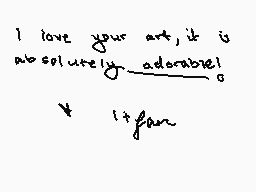 I love your art, it is
absolutely adorable!
★ 1+ fan